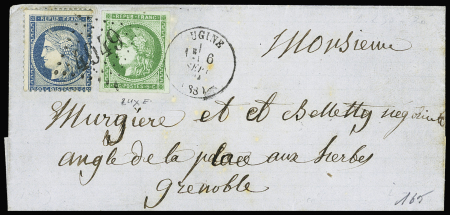 REPUB. FRANC.
REPUB. FRANC.
UGINE
6
SEPT
(88)
Monsieur
LUXE
Murgiere et et Belletty négociants
angle de la place aux herbes
grenoble
165